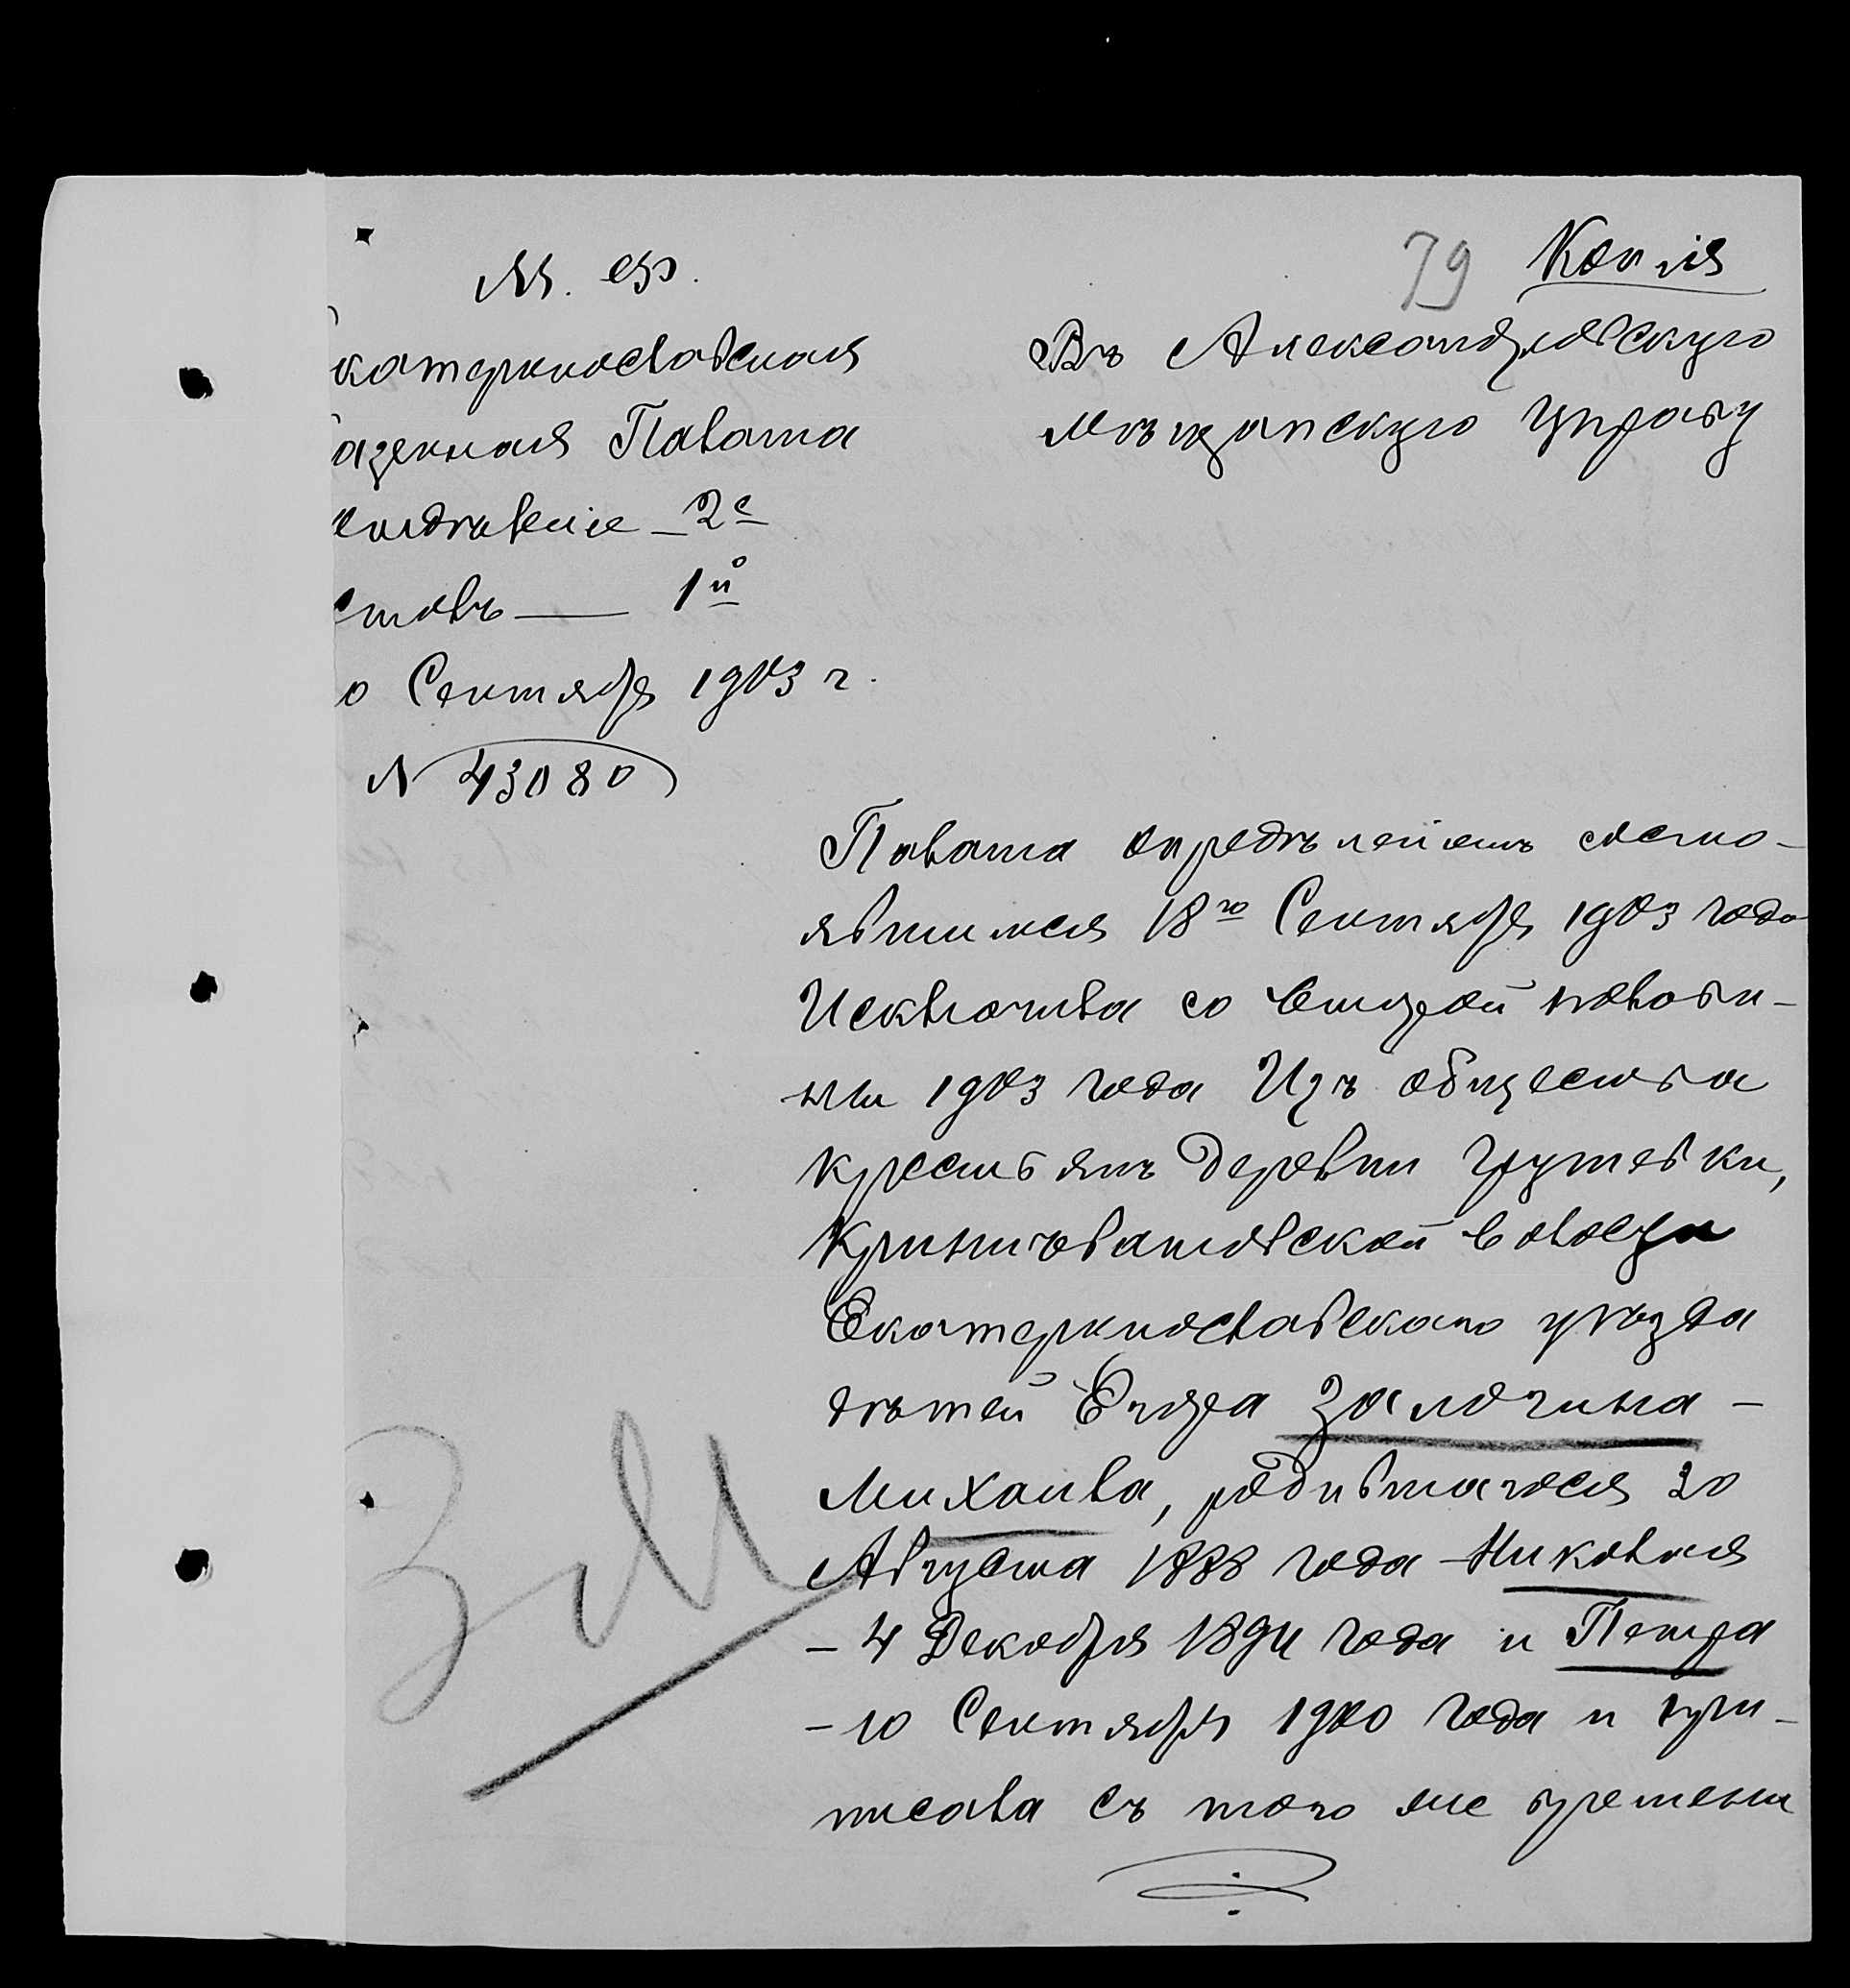 79 Копія
М. Ф.
катеринославская
азенная Палата
тдѣленіе – 2е
столъ — 1й
0 Сентября 1903 г.
№ 43080
Въ Александровскую
мѣщанскую Управу
Палата опредѣленіемъ состо-
явшимся 18го Сентября 1903 года
Исключила со второй полови-
ны 1903 года Изъ общества
крестьянъ деревни Грушевки,
Криничеватовской волости
Екатеринославскаго уѣзда
дѣтей Егора Замогина –
Михаила, родившагося 30
Августа 1888 года Николая
– 4 Декабря 1894 года и Петра
– 10 Сентября 1900 года и при-
писала съ того же времени